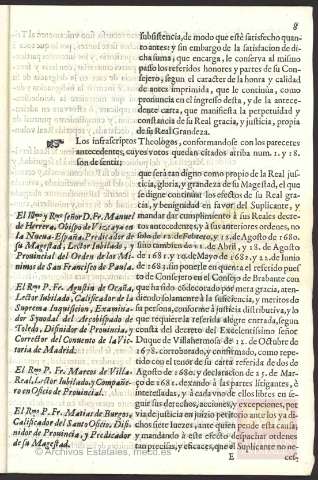 8
subsistencia, de modo que estè satisfecho quan-
to antes: y sin embargo de la satisfacion de di-
cha suma, que encarga, le conserva al mismo
passo los referidos honores y partes de su Con-
sejero, segun el caracter de la honra y calidad
de antes imprimida, que le continùa, como
pronuncia en el ingresso desta, y de la antece-
dente carta, que manifiesta la perpetuidad y
constancia de su Real gracia, y justicia, propia
de su Real Grandeza.
Los infrascriptos Theologos, conformandose con los pareceres
antecedentes, cuyos votos quedan citados arriba num. 1. y 18.
son de sentir;
El Ill.mo y R.mo señor D. Fr. Manuel
de Herrera, Obispo de Vizcaya en
la Nueva-España, Predicador de
su Magestad, Lector Iubilado, y
Provincial del Orden de los Mi-
nimos de San Francisco de Paula.
El R.mo P. Fr. Agustin de Ocaña,
Lector Iubilado, Calificador de la
Suprema Inquisicion, Examina-
dor Synodal del Arçobispado de
Toledo, Difinidor de Provincia, y
Corrector del Convento de la Vic-
toria de Madrid.
El R.mo P. Fr. Marcos de Villa-
Real, Lector Iubilado, y Compañe-
ro en Oficio de Provincial.
El R.mo P. Fr. Matias de Burgos,
Calificador del Santo Oficio, Difi-
nidor de Provincia, y Predicador
de su Magestad.
que serà tan digno como propio de la Real jus-
ticia, gloria, y grandeza de su Magestad, el que
se digne continuar los efectos de su Real gra-
cia, y benignidad en favor del Suplicante, y
mandar dar cumplimiento à sus Reales decre-
tos antecedente, y à sus anteriores ordenes, no
solo de Febrero, y 15. de Agosto de 1680.
sino tambien de 11. de Abril, y 18. de Agosto
de 1681. y 10. de Mayo de 1682. y 21. de Iunio
de 1683. sin ponerle en quenta el referido pues-
to de Consejero en el Consejo de Brabante con
que ha sido condecorado por meta gracia, aten-
diendo solamente à la suficiencia, y meritos de
su persona, conforme à justicia distributiva, y lo
que requiere la referida alegre entrada, segun
consta del decreto del Excelentissimo señor
Duque de Villahermosa de 12. de Octubre de
1678. corroborado, y confirmado, como repe-
tido con el tenor de su carta referida de dos de
Agosto de 1680. y declaracion de 15. de Mar-
ço de 1681. dexando à las partes litigantes, è
interessadas, y à cadavno de ellos libres en se-
guir sus derechos, acciones, y excepciones, por
via de justicia en juizio petitorio ante los ya di-
chos siete luezes, ante quien pende esta causa,
y mandando à este efecto despachar ordenes
tan precisas, y eficaces, que el Suplicante no ne-
E
ces-
© Archivos Estatales, mecd.es